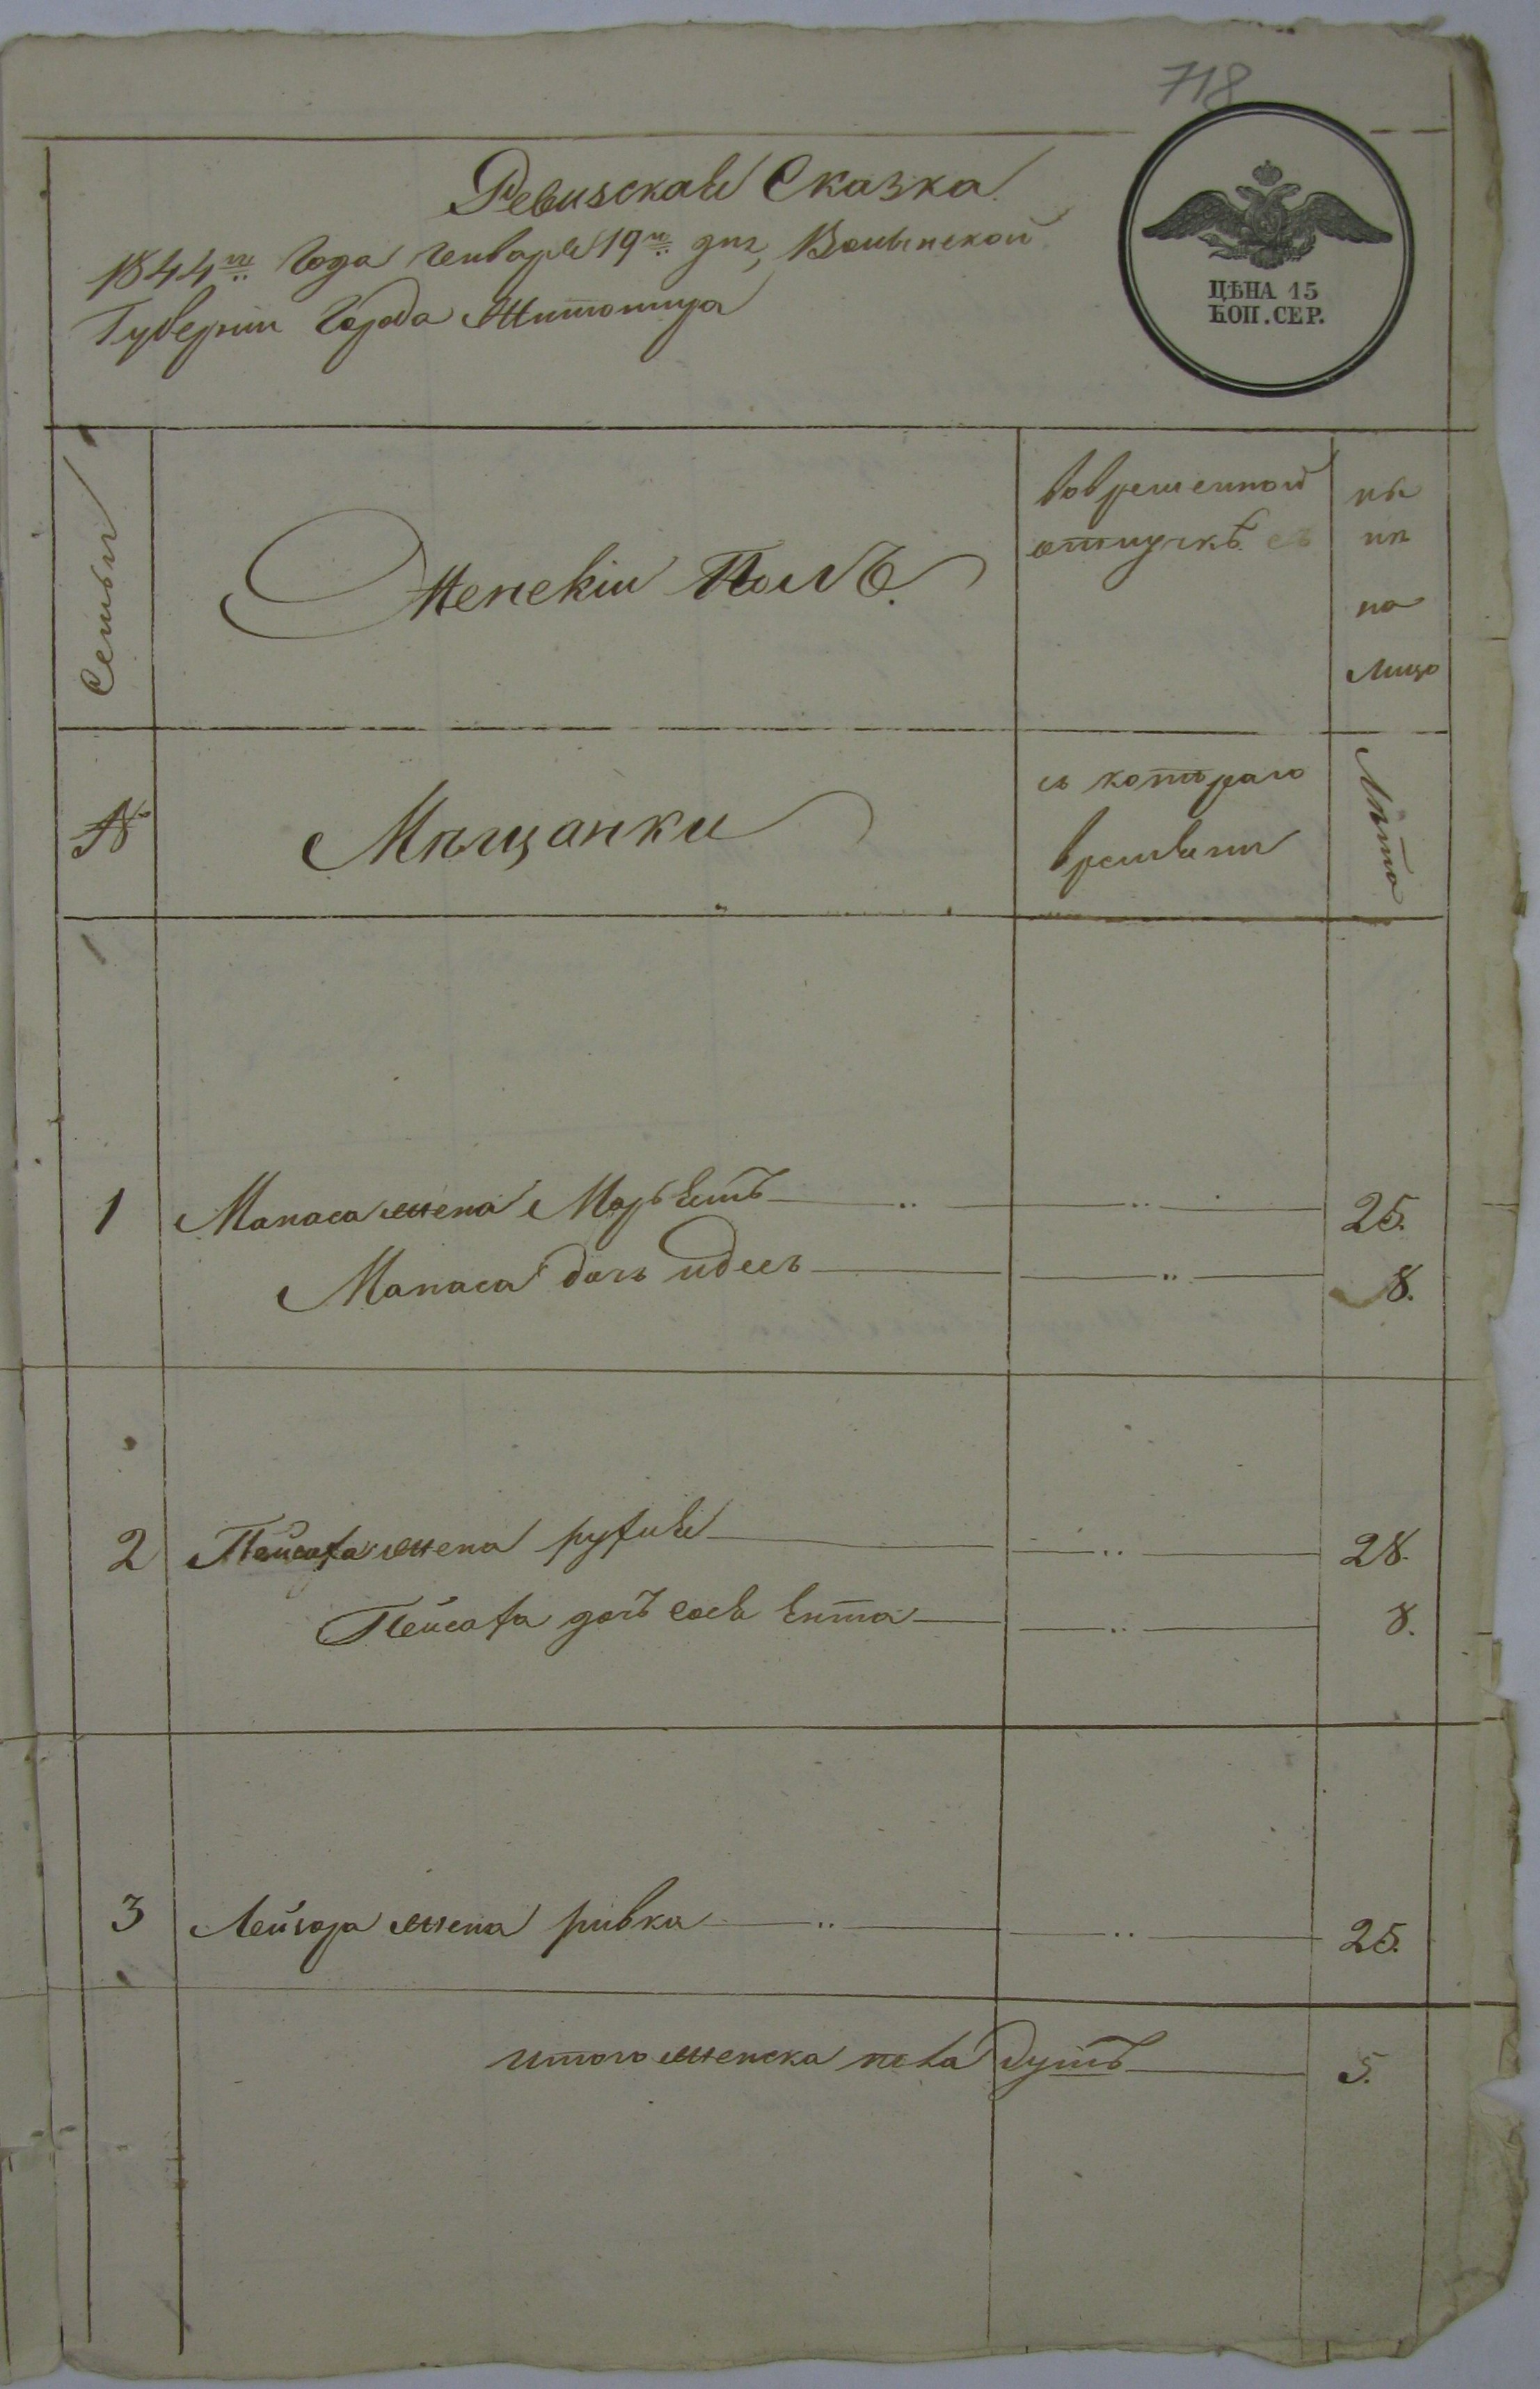 718
Ревизская Сказка
1844го Года Генваря 19го дня, Волынской
Губернии Города Житомира
ЦѢНА 15
КОП. СЕР.
Семьи
Женскiи Полъ.
во временной
отлучкѣ
нѣ
нѣ
на
лицо
№
Мѣщанки
съ котораго
времяни
Лѣта
1 Манаса жена Марьемъ 25.
Манаса дочь идесъ 8.
2 Пейсаха жена рухля 28.
Пейсаха дочъ сося Ента 8.
3 Лейзора жена ривка 25.
итого женска пола душъ 5.